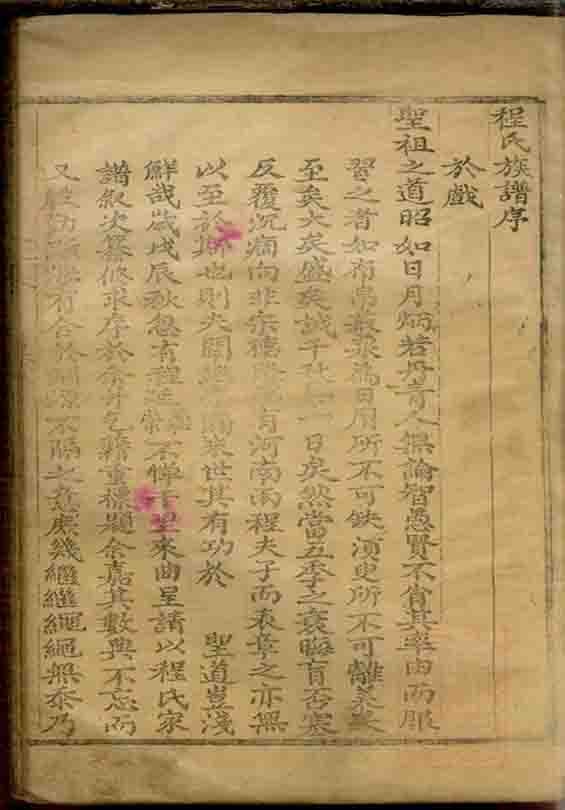 程氏族譜序
於戲
聖祖之道昭如日月炳若丹青人無論智愚賢不肖其率由而服
習之者如布帛菽粟為日用所不可缺須臾所不可離美矣
至矣大矣盛矣誠千秋如一日矣然當五季之衰晦盲否塞
反覆沉痼向非宗德隆有河南兩程夫子而表章之亦無
以至於斯也則夫開來世其有功於 聖道豈淺
鮮哉歲戊辰秋忽有程不憚千里來曲呈請以程氏家
譜叙次纂修求序於余并乞籍重標題余嘉其數典不忘而
又有合於不隔之意庶幾繼繼繩繩無忝乃